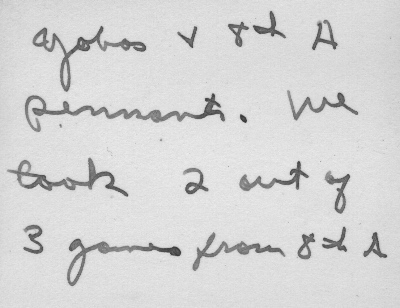 Azobos + 8th A
pennants. We
took 2 out of
3 games from 8th A